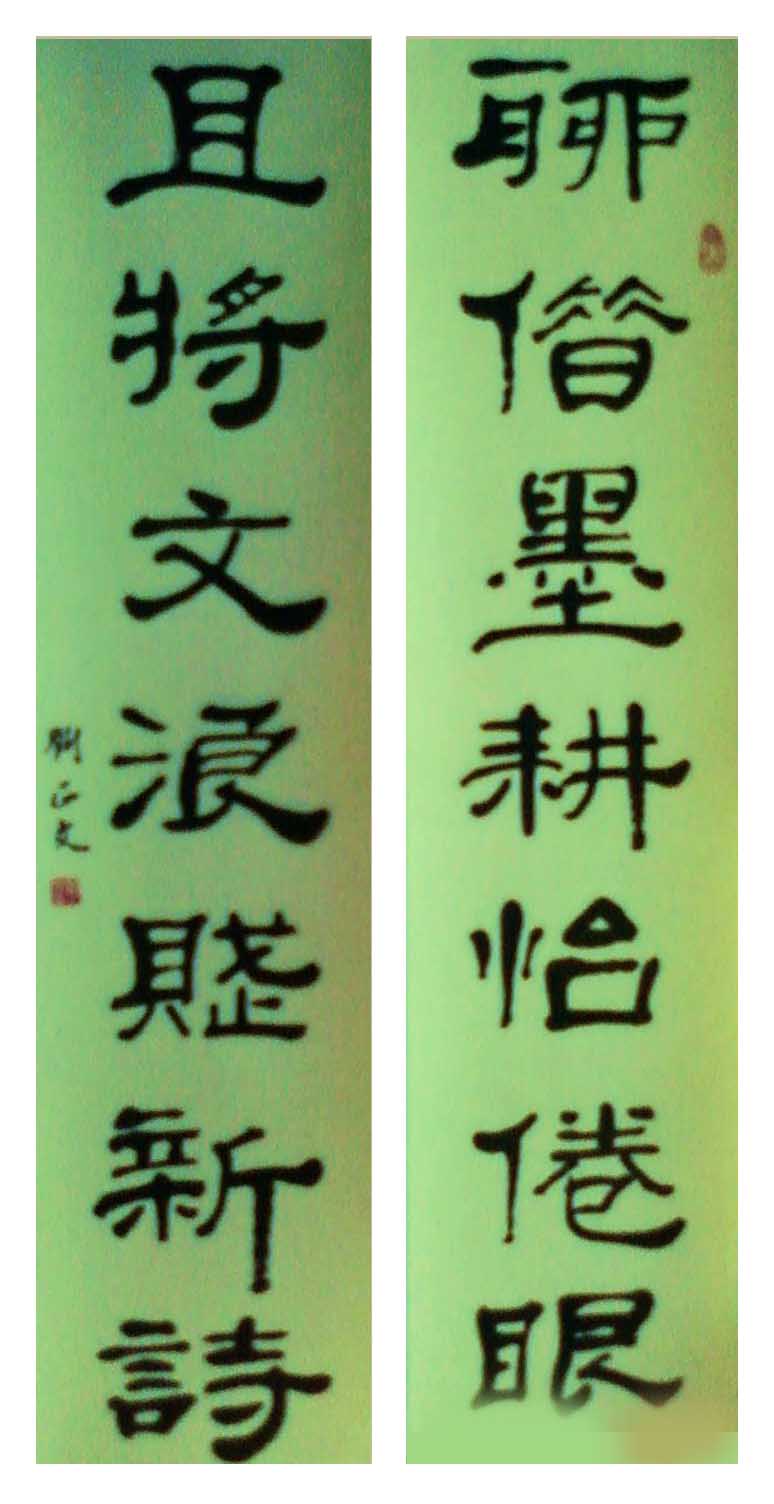 聊借墨耕怡倦眼
且將文浪賦新詩
劉正文